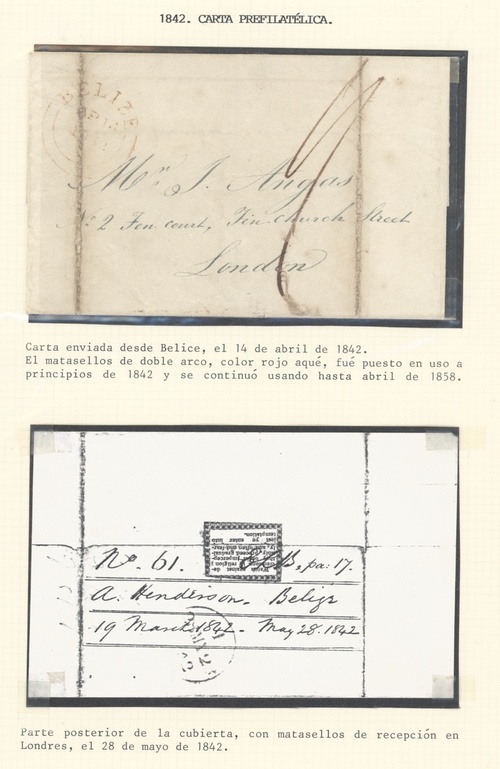 1842. CARTA PREFILATÉLICA.
BELIZE
Mr. J. Angas
No 2 Fen court, Fin Church Street
London
Carta enviada desde Belice, el 14 de abril de 1842.
El matasellos de doble arco, color rojo aqué, fué puesto en uso a
principios de 1842 y se continuó usando hasta abril de 1858.
No. 61. pa: 17.
A. Henderson. Belize
19 March 1842 - May 28. 1842
Parte posterior de la cubierta, con matasellos de recepción en
Londres, el 28 de mayo de 1842.